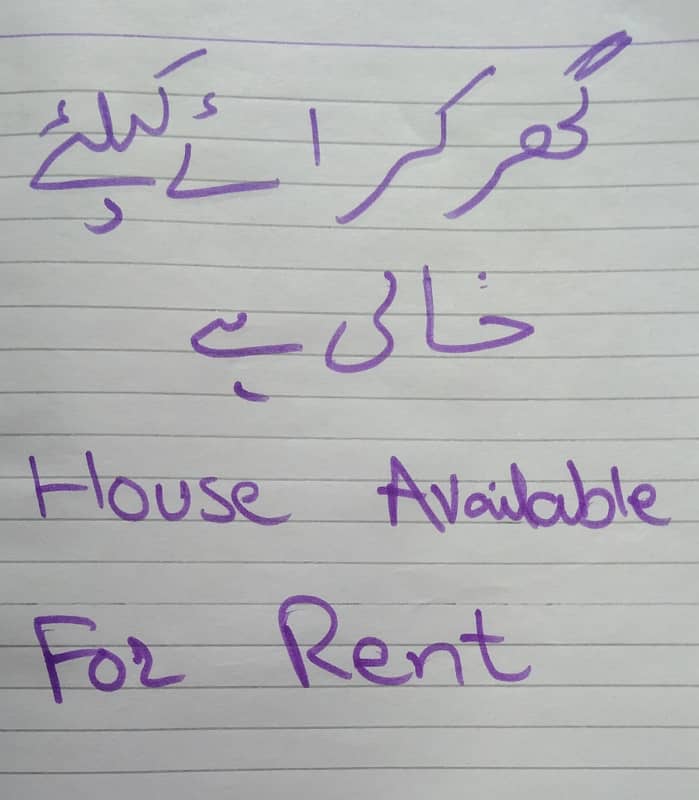 گھر کرائے کیلئے
خالی ہے
House Available
For Rent